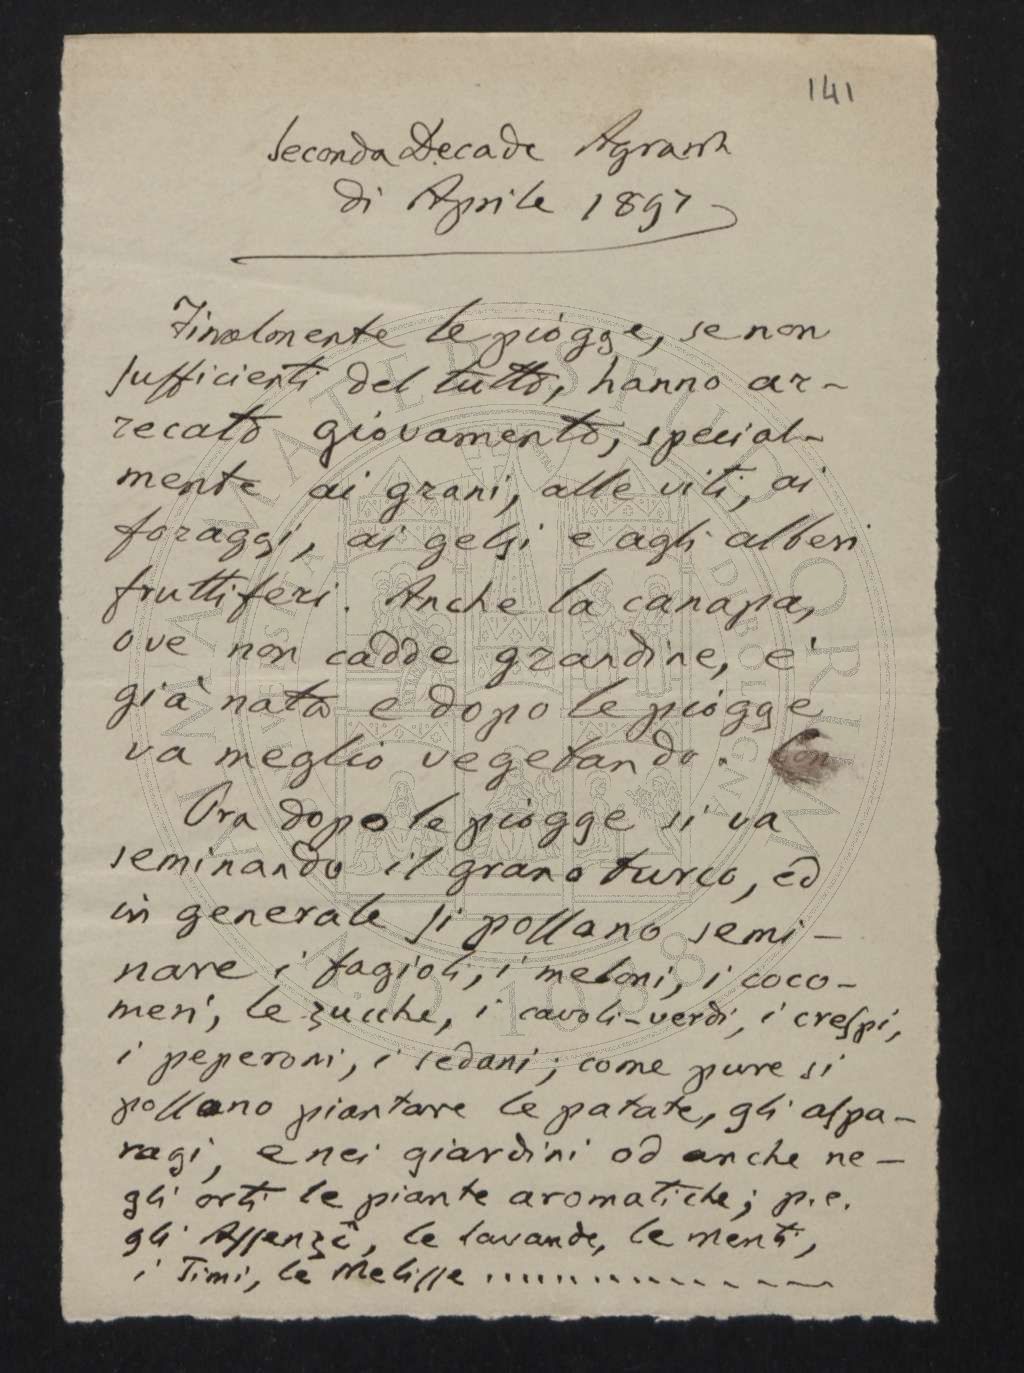 141
Seconda Decade Agraria
di Aprile 1897
Finalmente le piogge, se non
sufficienti del tutto, hanno ar-
recato giovamento, special-
mente ai grani, alle viti, ai
foraggi, ai gelsi e agli alberi
fruttiferi. Anche la canapa,
ove non cadde grandine, e'
già nata e dopo le piogge
va meglio vegetando.
Ora dopo le piogge si va
seminando il grano turco, ed
in generale si possano semi-
nare i fagioli, i meloni, i coco-
meri, le zucche, i cavoli-verdi, i crespi,
i peperoni, i sedani; come pure si
possano piantare le patate, gli aspa-
ragi, e nei giardini od anche ne-
gli orti le piante aromatiche; p.e.
gli Assenzî, le lavande, le menti,
i Timi, le Melisse ..............
ALMA MATER STUDIORUM
A.D. 1088